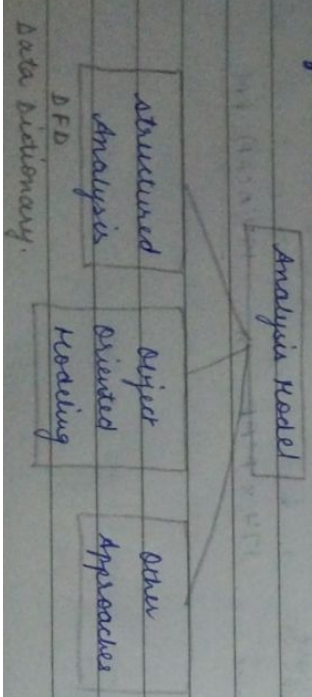 Analysis Model
Structured
Analysis
Object
Oriented
Modeling
Other
Approaches
DFD
Data Dictionary.